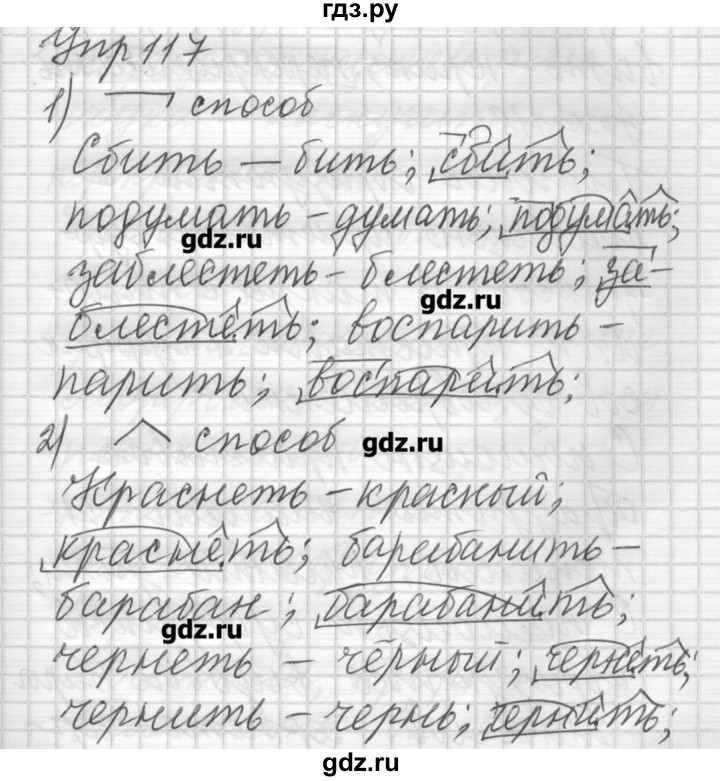 гдз.ру
Упр 117
1) способ
Сбить – бить; сбить;
подумать – думать; подумать;
gdz.ru
заблестеть – блестеть; за-
gdz.ru
блестеть; воспарить –
парить; воспарить;
2) способ gdz.ru
Краснеть – красный;
краснеть; барабанить –
барабан; барабанить;
gdz.ru
чернеть – чёрный; чернеть;
чернить – чернь; чернить;
gdz.ru